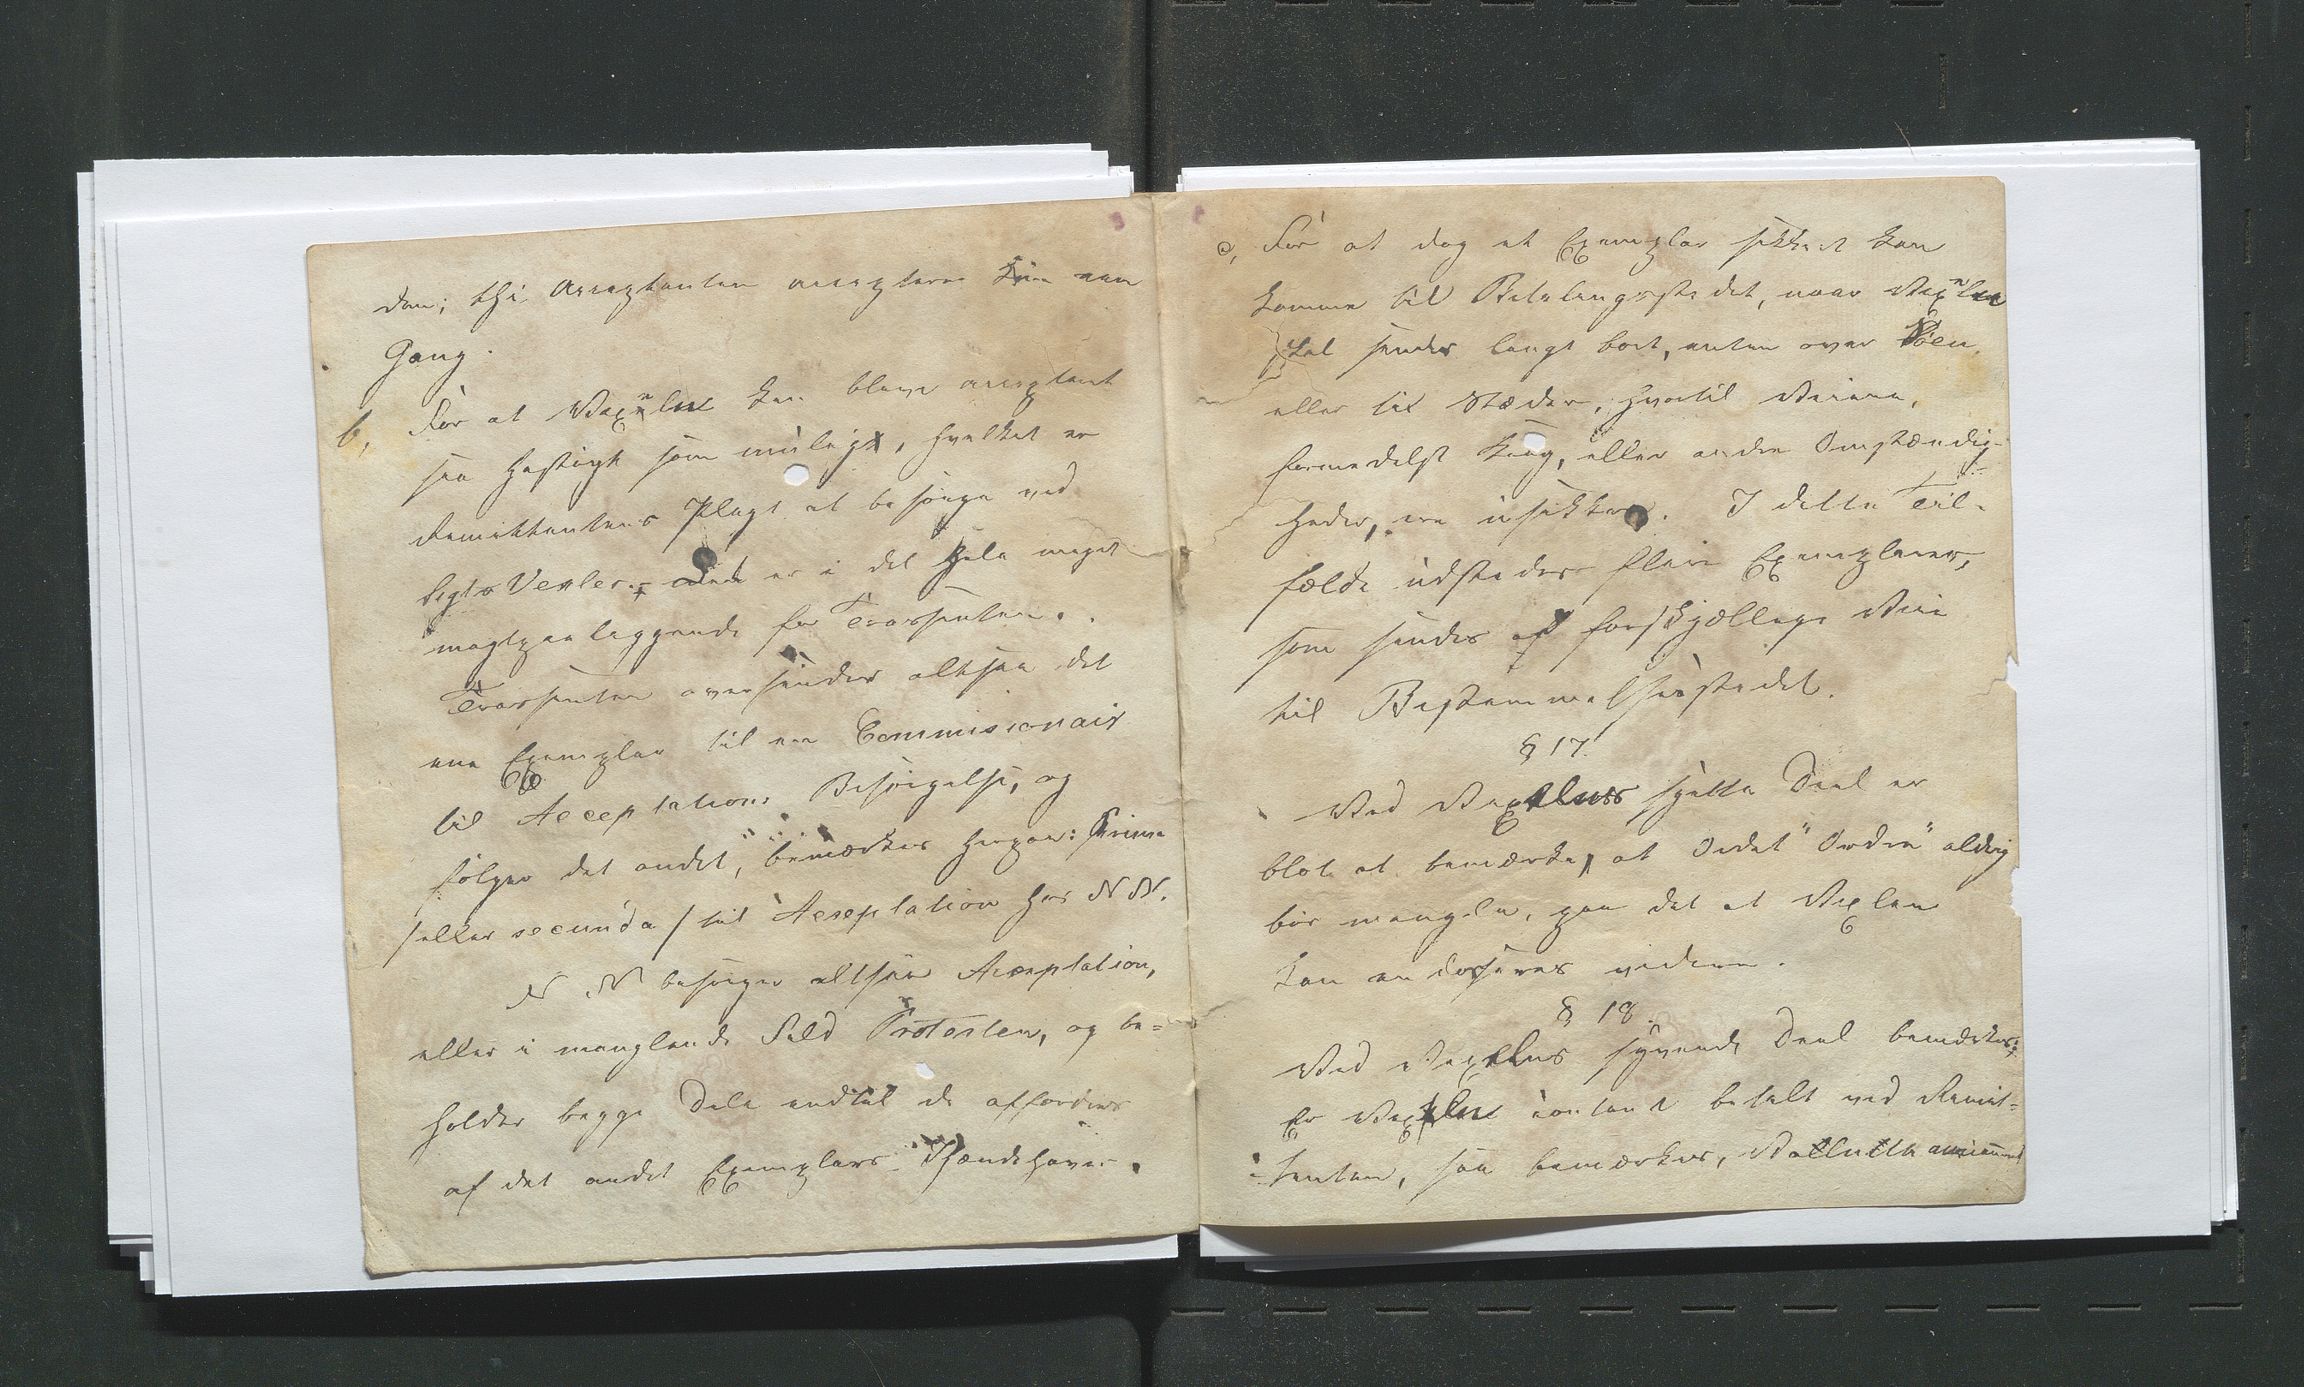 dem; thi Acceptanten accepterer kun een
Gang.
b, For at Vexelen kan blive accepteret
saa hastigt som muligt, hvilket er
Remittentens Pligt at besørge ved
Sigt Vexler, er i det hele meget
magtpaaliggende for Trassenten.
Trassenten oversender altsaa det
ene Exemplar til en Commissionair
til Acceptations Besørgelse, og
følger det andet, bemærkes herpaa: Prima
/eller secunda/ til Acceptation hos N N.
N N besørger altsaa Acceptation,
eller i manglende Fald Protesten, og be=
holder begge Dele indtil de affordres
af det andet Exemplars Ihændehaver.
c, For at dog et Exemplar sikkert kan
komme til Betalingsstedet, naar Vexelen
skal sendes langt bort, enten over Søen,
eller til Stæder, hvortil Veiene,
formedelst Krig, eller andre Omstændig-
heder, ere usikkre. I dette Til-
fælde udstedes flere Exemplarer,
som sendes af forskjællige Veie
til Bestemmelsesstedet.
§ 17
Ved Vexelens sjette Deel er
blot at bemærke, at Ordet "Ordre" aldrig
bør mangle, paa det at Vexlen
kan endosseres videre.
§ 18.
Ved Vexelens syvende Deel bemærkes:
Er Vexelen contant betalt ved Remit=
=tenten, saa bemærkes, Valuta